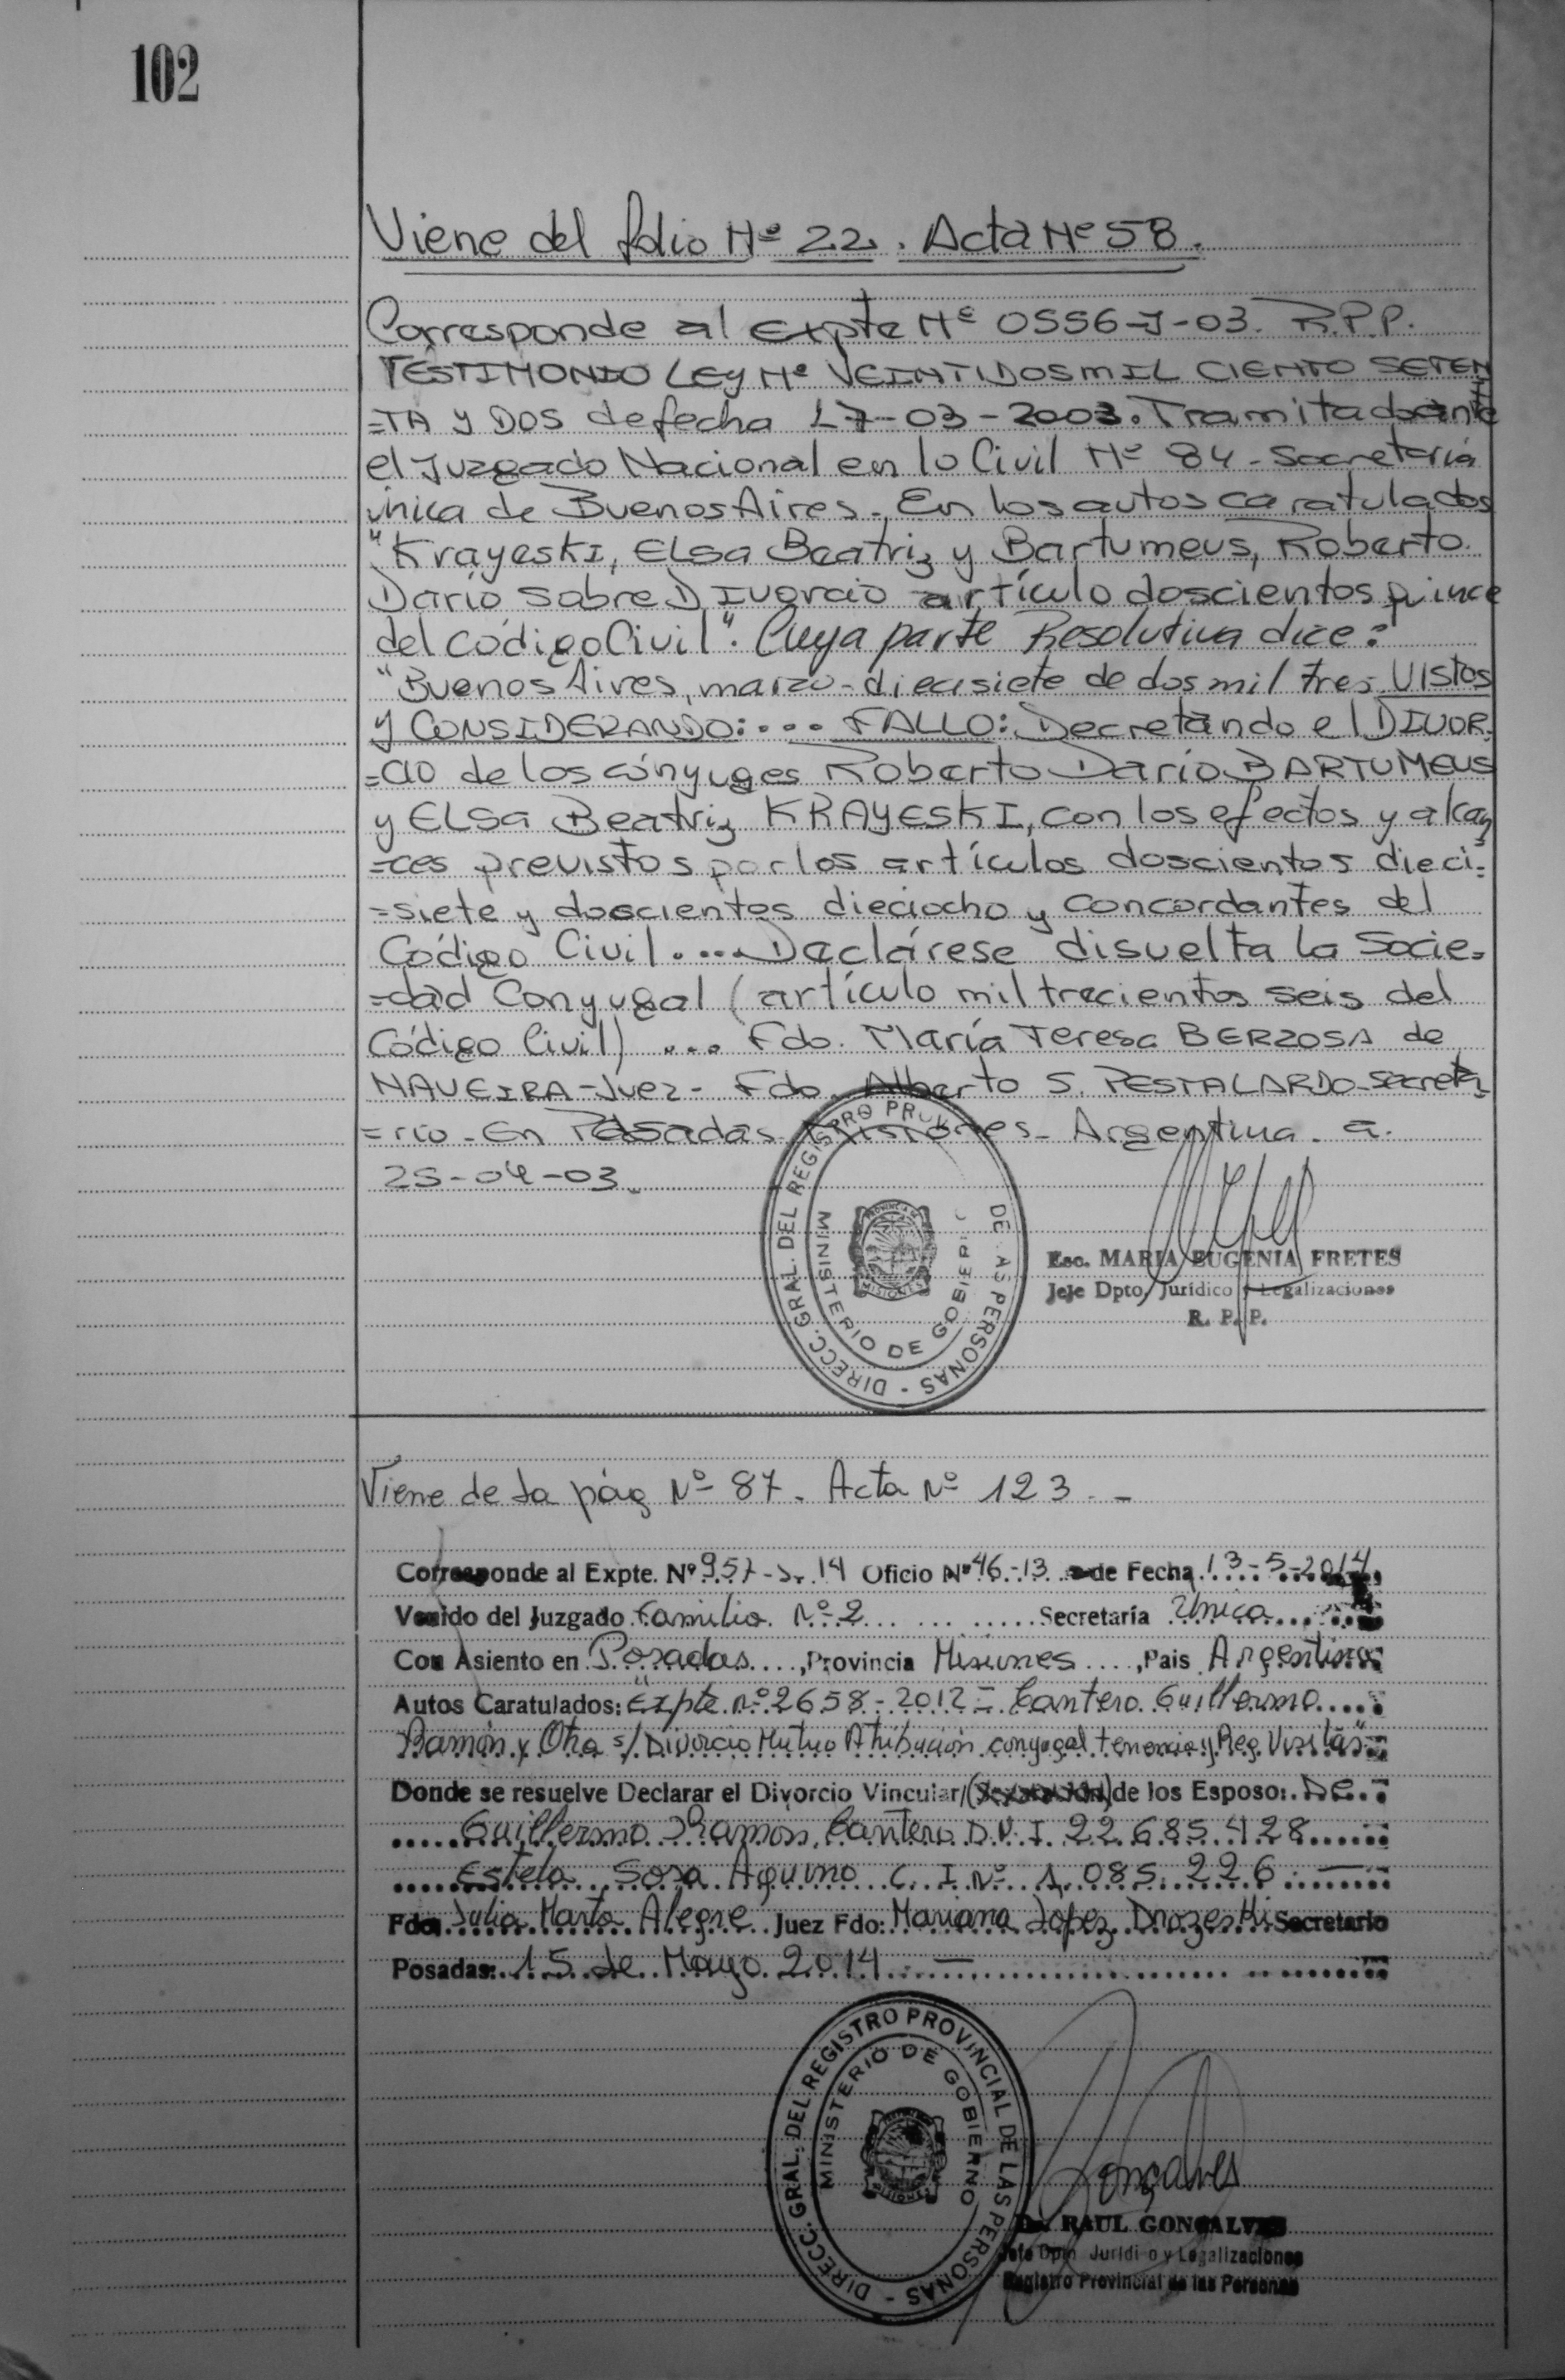 102
Viene del folio Nº 22. Acta Nº 58.
Corresponde al expte Nº 0556-J-03. R.P.P.
TESTIMONIO LEY Nº VEINTIDOSMIL CIENTO SETEN
=TA Y DOS de fecha 17-03-2003. Tramitado ante
el Juzgado Nacional en lo Civil Nº 84 - Secretaría
única de Buenos Aires. En los autos caratulados
"Krayeski, Elsa Beatriz y Bartumeus, Roberto
Darío sobre Divorcio artículo doscientos quince
del Código Civil". Cuya parte Resolutiva dice:
"Buenos Aires, marzo - diecisiete de dos mil tres. Vistos
y CONSIDERANDO: ... FALLO: Decretando el DIVOR-
=cio de los cónyuges Roberto Darío BARTUMEUS
y Elsa Beatriz KRAYESKI, con los efectos y alcan
=ces previstos por los artículos doscientos dieci=
=siete y doscientos dieciocho y concordantes del
Código Civil. ... Declárese disuelta la Socie=
=dad Conyugal (artículo mil trecientos seis del
Código Civil) ... Fdo. María Teresa BERZOSA de
NAVEIRA - Juez - Fdo. Alberto S. PESTALARDO - Secreta
=rio - En Posadas Misiones - Argentina. a.
25-04-03.
DIRECC. GRAL. DEL REGISTRO PROV DE LAS PERSONAS -
MINISTERIO DE GOBIER
PROVINCIA DE
MISIONES
Esc. MARIA EUGENIA FRETES
Jefe Dpto. Jurídico y Legalizaciones
R. P. P.
Viene de la pág Nº 87. Acta Nº 123. -
Corresponde al Expte. Nº 957- 14 Oficio Nº 46-13 de Fecha 13-5-2014
Venido del Juzgado Familia Nº 2 Secretaría Unica
Con Asiento en Posadas, Provincia Misiones, Pais Argentina
Autos Caratulados: "Expte. nº 2658-2012 - Cantero Guillermo
Ramón y Otra s/ Divorcio Mutuo Atribución conyugal tenencia y Reg. Visitas"
Donde se resuelve Declarar el Divorcio Vincular/ de los Esposo: De
Guillermo Ramón Cantero D.N.I. 22.685.428
Estela Sosa Aquino C.I Nº 1.085.226. -
Fdo: Julia Marta Alegre Juez Fdo: Mariana Lopez Drozeski Secretario
Posadas: 15 de Mayo 2014. -
DIRECC. GRAL. DEL REGISTRO PROVINCIAL DE LAS PERSONAS -
MINISTERIO DE GOBIERNO
MISIONES
Gonçalves
Dr. RAUL GONÇALVES
Jefe Dpto Juridico y Legalizaciones
Registro Provincial de las Personas